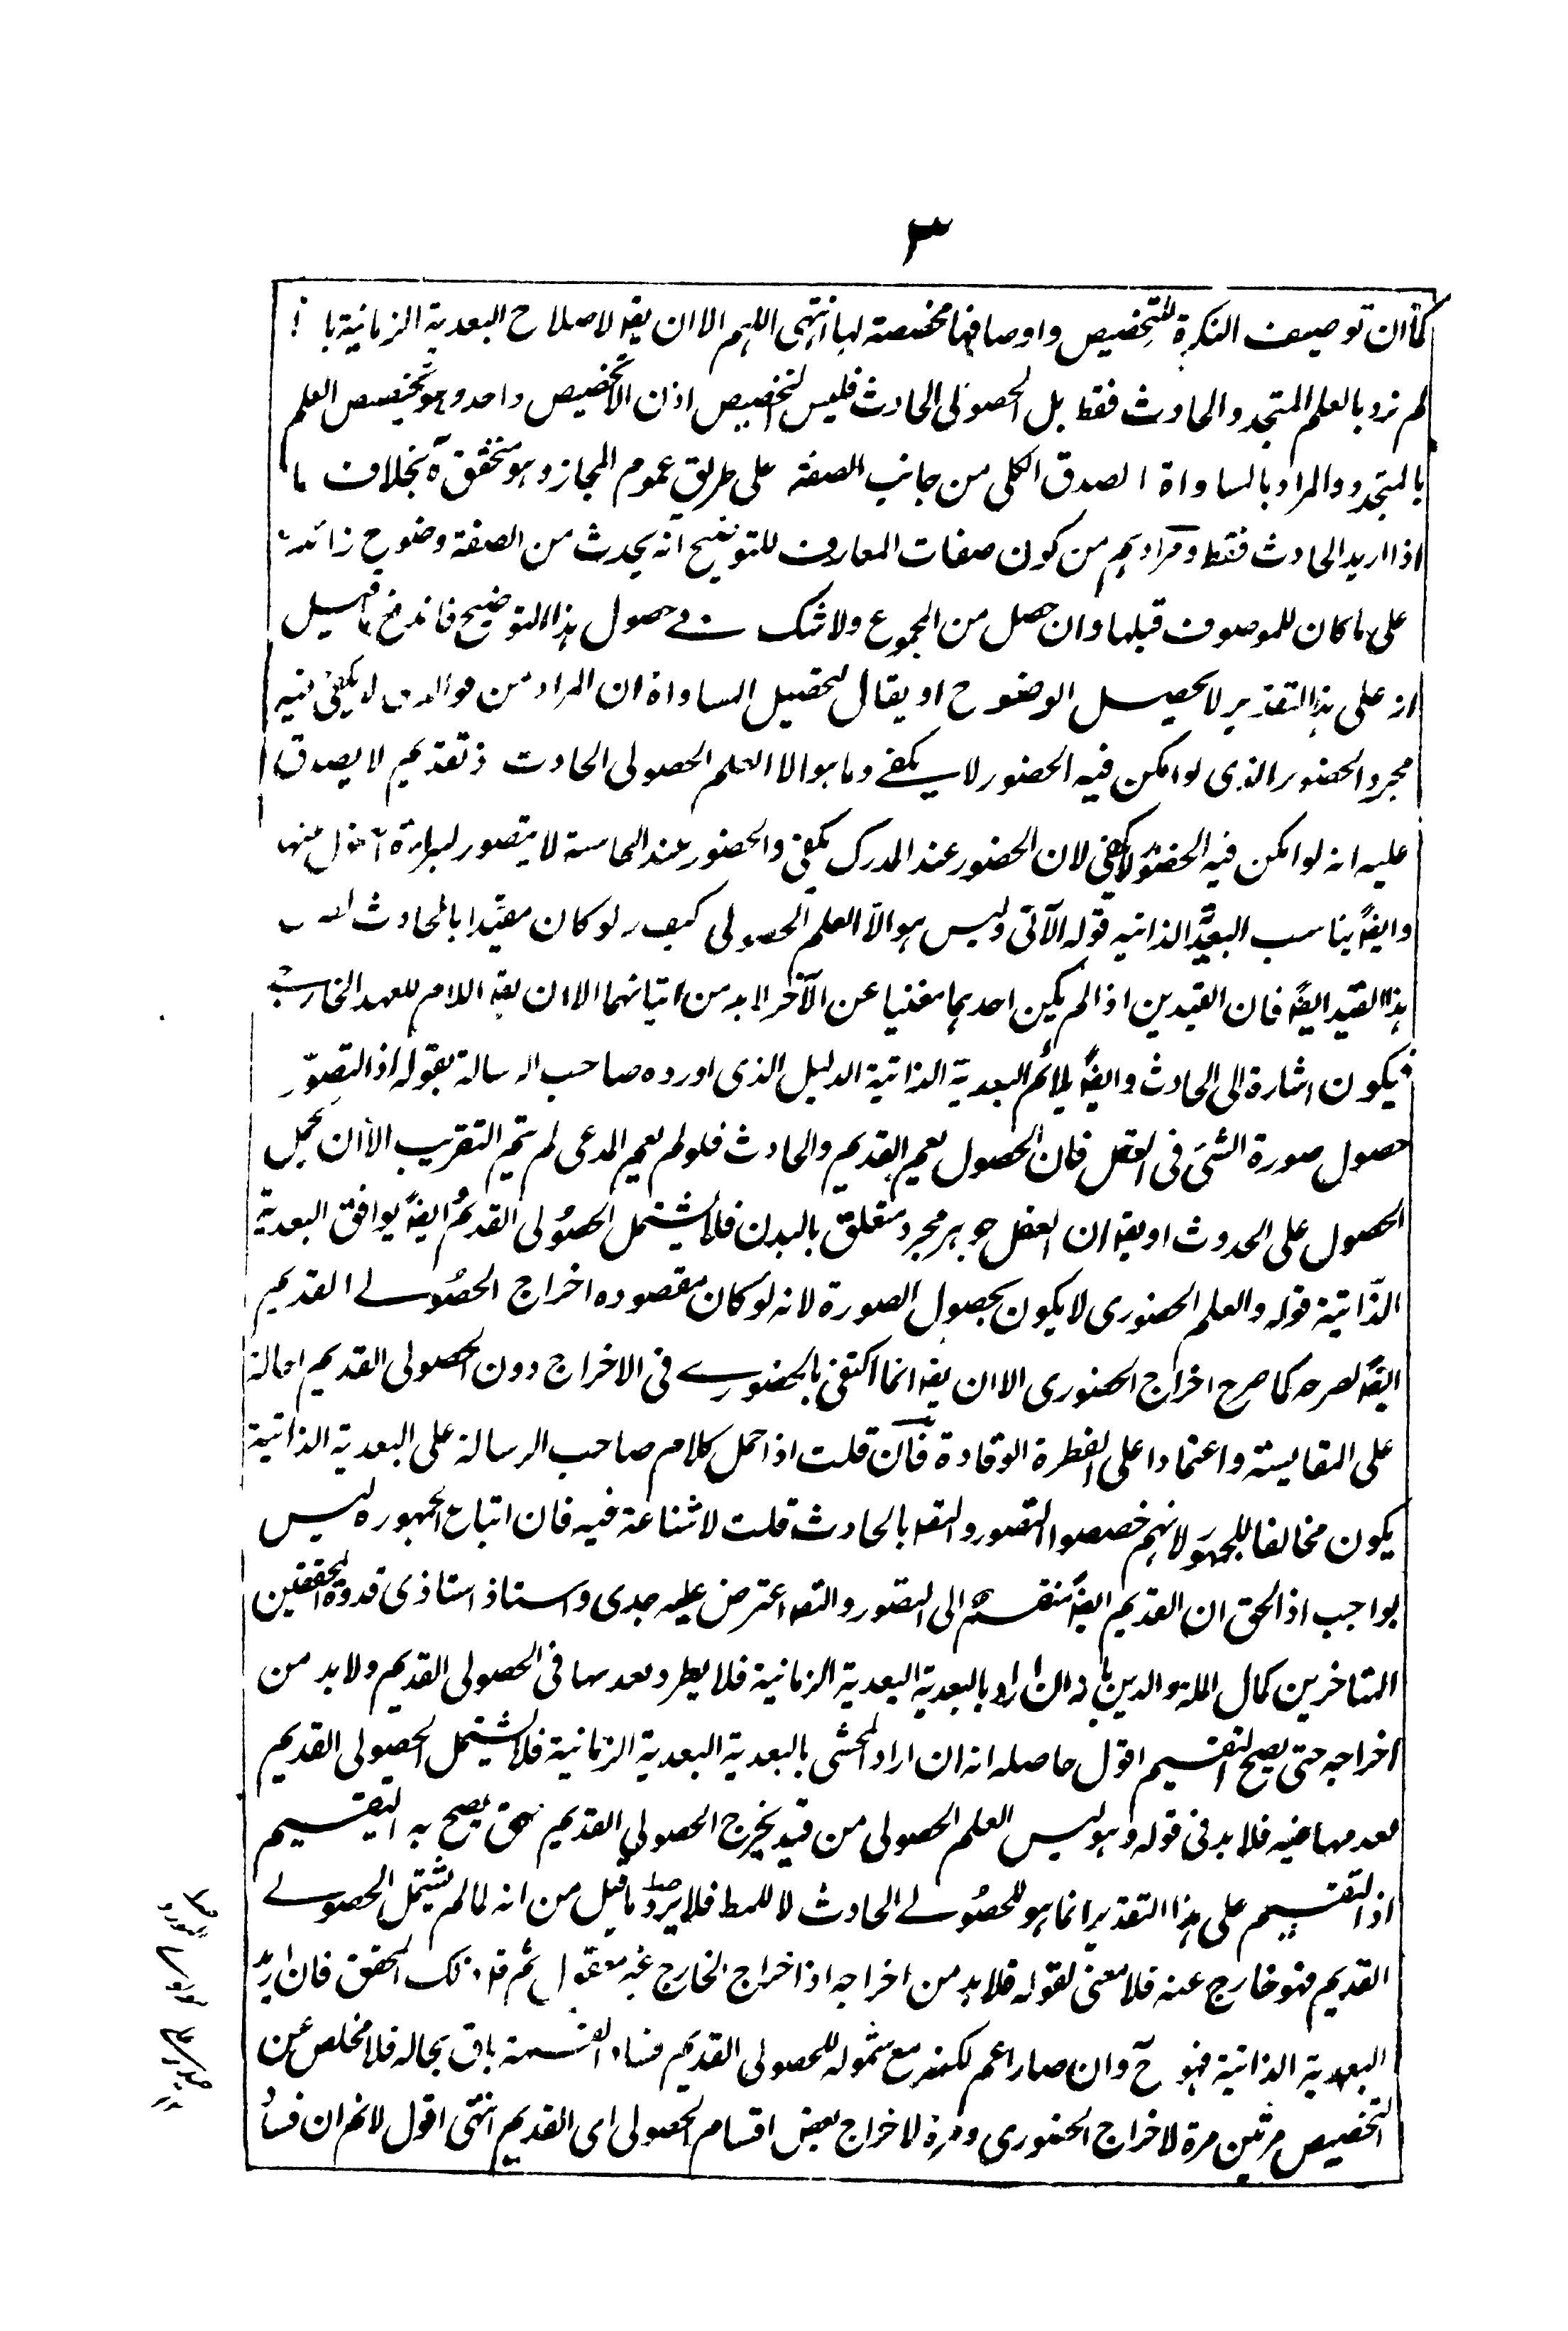 ٣
كما ان توصيف النكرة للتخصيص واوصافها مخصصة لها انتهى اللهم الا ان يقه لاصلاح البعدية الزمانية با
لم نرد بالعلم المتجدد الحادث فقط بل الحصولى الحادث فليس التخصيص اذن الا تخصيص واحد وهو تخصيص العلم
بالمتجدد والمراد بالمساواة الصدق الكلى من جانب الصفة على طريق عموم المجاز وهو متحقق ح بخلاف ما
اذا اريد الحادث فقط ومرادهم من كون صفات المعارف للتوضيح انه يحدث من الصفة وضوح زائد
على ما كان للموصوف قبلها وان حصل من المجموع ولا شك فى حصول هذا التوضيح فاندفع ما قيل
ان على هذا التقدير لا يحصل الوضوح او يقال لتحصيل المساواة ان المراد من هو الذى لا يكفى فيه
مجرد الحضور الذى لو امكن فيه الحضور لا يكفى وما هو الا العلم الحصولى الحادث اذ القديم لا يصدق
عليه انه لو امكن فيه الحضور لا يكفى لان الحضور عند المدرك يكفى والحضور عند الحاسة لا يتصور
وايضً يناسب البعدية الذاتية قوله الآتى وليس هو الا العلم الحصولى كيف ولو كان مقيدا بالحادث
هذا القيد ايضً فان القيدين اذا لم يكن احدهما مغنيا عن الآخر لا بد من اتيانهما الا ان يقه اللام للعهد الخارجى
فيكون اشارة الى الحادث وايضً يلائم البعدية الذاتية الدليل الذى اورده صاحب الرسالة بقوله اذ التصوّر
حصول صورة الشئ فى العقل فان الحصول يعم القديم والحادث فلو لم يعم المدعى لم يتم التقريب الا ان يحمل
الحصول على الحدوث او يقه ان العقل جوهر مجرد متعلق بالبدن فلا يشتمل الحصولى القديم وايضً يوافق البعدية
الذاتية قوله والعلم الحضورى لا يكون بحصول الصورة لانه لو كان مقصوده اخراج الحصولى القديم
ايضً لصرحه كما صرح اخراج الحضورى الا ان يقه انما اكتفى بالحضورى فى الاخراج دون الحصولى القديم احالة
على المقايسة واعتمادا على الفطرة الوقادة فان قلت اذا حمل كلام صاحب الرسالة على البعدية الذاتية
يكون مخالفا للجمهور لانهم خصصوا التصور والتصه بالحادث قلت لا شناعة فيه فان اتباع الجمهور ليس
بواجب اذ الحق ان القديم ايضً منقسم الى التصور والتصه اعترض عليه جدى واستاذ استاذى قدوة المحققين
المتاخرين كمال الملة والدين بانه ان اراد بالبعدية البعدية الزمانية فلا يطرد لعدمها فى الحصولى القديم ولا بد من
اخراجه حتى يصح التقسيم اقول حاصله انه ان اراد المحشى بالبعدية البعدية الزمانية فلا يشتمل الحصولى القديم
لعدمها فيه فلا بد فى قوله وهو ليس العلم الحصولى من قيد يخرج الحصولى القديم حتى يصح به التقسيم
اذ التقسيم على هذا التقدير انما هو للحصولى الحادث لا للمط فلا يرد ما قيل من انه لما لم يشتمل الحصولى
القديم فهو خارج عنه فلا معنى لقوله فلا بد من اخراجه اذ اخراج الخارج غير معقول ثم قال ذلك المحقق فان اريد
البعدية الذاتية فهو ح وان صار اعم لكنه مع شموله للحصولى القديم فساد القسمة باق بحاله فلا مخلص عن
التخصيص مرتين مرة لاخراج الحضورى ومرة لاخراج بعض اقسام الحصولى اى القديم انتهى اقول لا نم ان فساد